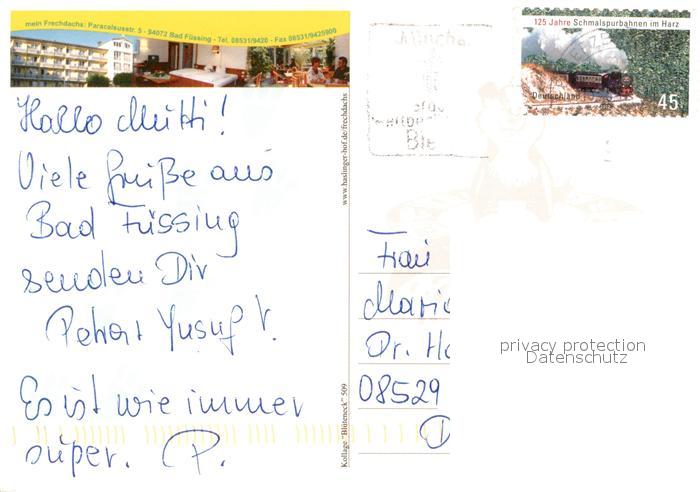 mein Frechdachs: Paracelsusstr. 5 - 94072 Bad Füssing - Tel. 08531/9420 - Fax 08531/9425900
Hallo Mutti!
Viele Grüße aus
Bad Füssing
senden Dir
Petra + Yusuf
Es ist wie immer
super. P.
www.haslinger-hof.de/frechdachs
Kollage "Blüteneck" 509
125 Jahre Schmalspurbahnen im Harz
Deutschland
45
Frau
Dr.
08529
privacy protection
Datenschutz